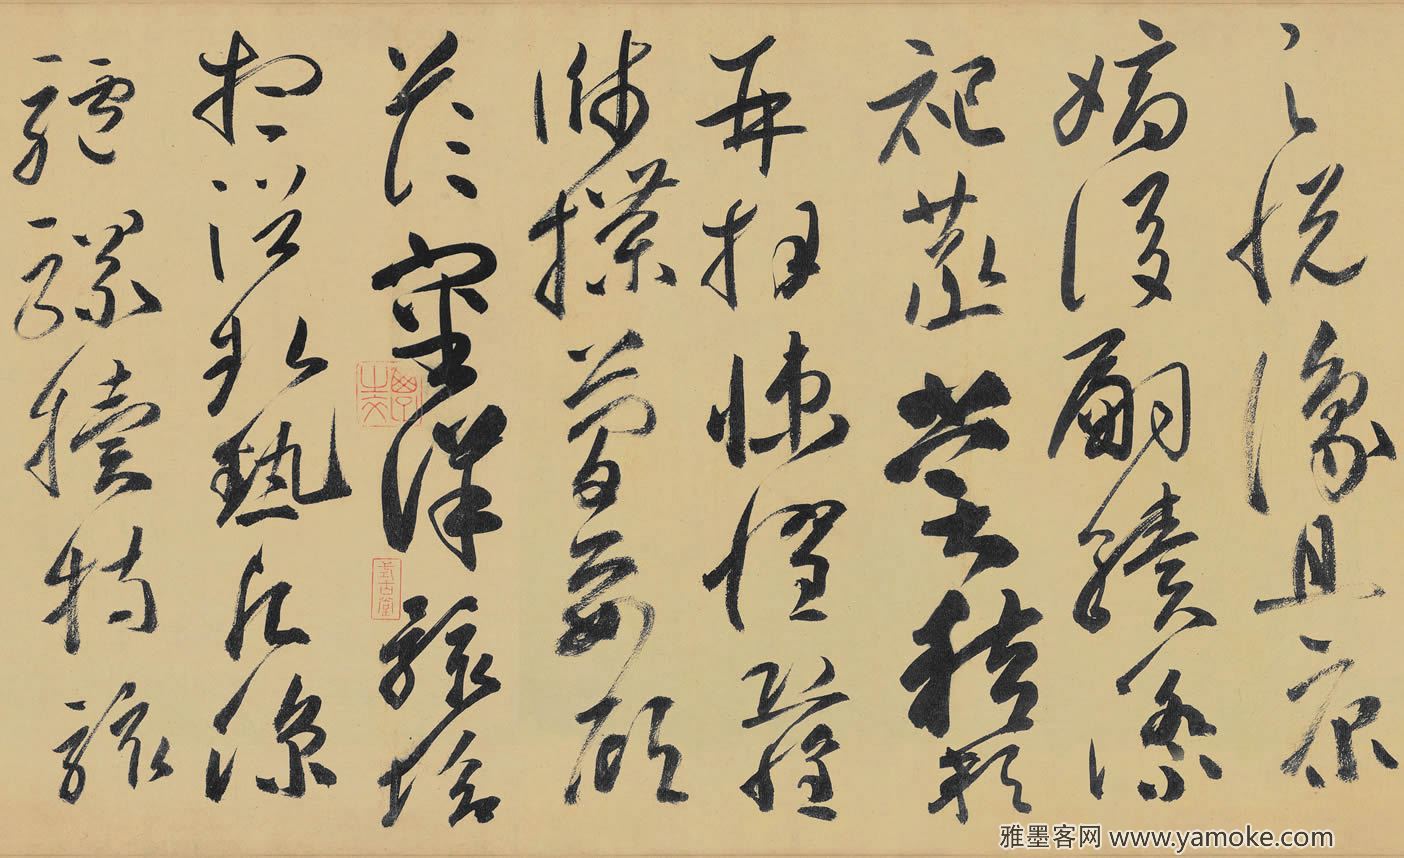 足悅豫且康
嫡後嗣續祭
祀蒸嘗稽顙
再拜悚懼恐惶
牋牒簡要顧
答審詳骸垢
想浴執熱願涼
驢騾犢特駭
式古堂
雅墨客网 www.yamoke.com